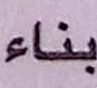 بناء